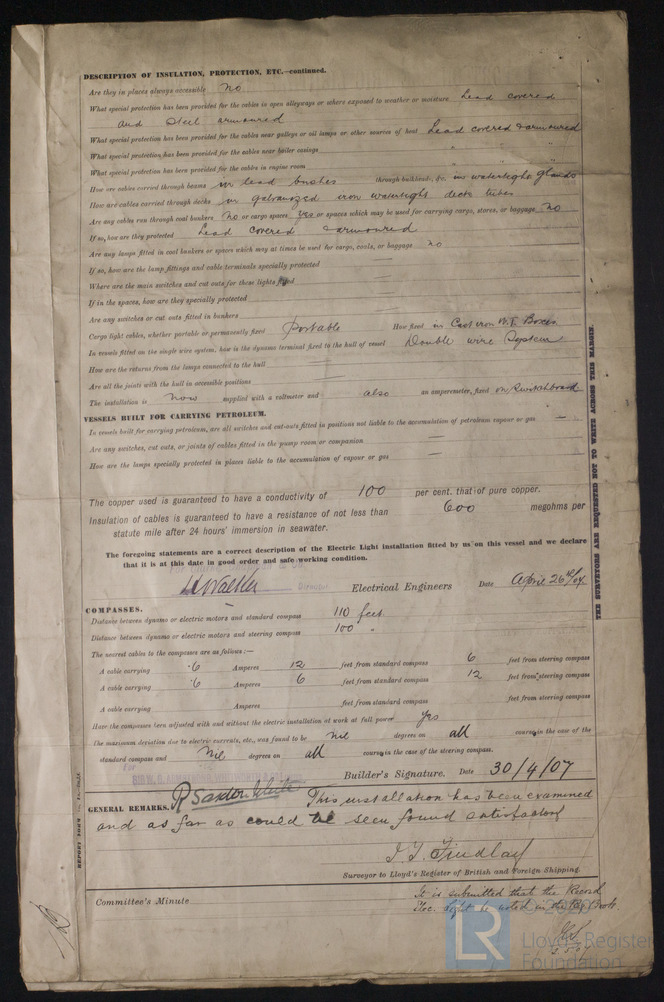 DESCRIPTION OF INSULATION, PROTECTION, ETC.—continued.
Are they in places always accessible No
What special protection has been provided for the cables in open alleyways or where exposed to weather or moisture Lead covered
and steel armoured
What special protection has been provided for the cables near galleys or oil lamps or other sources of heat Lead covered & armoured
What special protection has been provided for the cables near boiler casings " " "
What special protection has been provided for the cables in engine room " " "
How are cables carried through beams in lead bushes through bulkheads, &c. in watertight glands
How are cables carried through decks in galvanized iron watertight deck tubes
Are any cables run through coal bunkers No or cargo spaces Yes or spaces which may be used for carrying cargo, stores, or baggage No
If so, how are they protected Lead covered & armoured
Are any lamps fitted in coal bunkers or spaces which may at times be used for cargo, coals, or baggage No
If so, how are the lamp fittings and cable terminals specially protected —
Where are the main switches and cut outs for these lights fitted —
If in the spaces, how are they specially protected —
Are any switches or cut outs fitted in bunkers —
Cargo light cables, whether portable or permanently fixed Portable How fixed in Cast iron W.T. Boxes
In vessels fitted on the single wire system, how is the dynamo terminal fixed to the hull of vessel Double wire System
How are the returns from the lamps connected to the hull —
Are all the joints with the hull in accessible positions —
The installation is now supplied with a voltmeter and also an amperemeter, fixed on Switchboard
VESSELS BUILT FOR CARRYING PETROLEUM.
In vessels built for carrying petroleum, are all switches and cut-outs fitted in positions not liable to the accumulation of petroleum vapour or gas —
Are any switches, cut outs, or joints of cables fitted in the pump room or companion —
How are the lamps specially protected in places liable to the accumulation of vapour or gas —
The copper used is guaranteed to have a conductivity of 100 per cent. that of pure copper.
Insulation of cables is guaranteed to have a resistance of not less than 600 megohms per
statute mile after 24 hours' immersion in seawater.
The foregoing statements are a correct description of the Electric Light installation fitted by us on this vessel and we declare
that it is at this date in good order and safe working condition.
Walker Electrical Engineers Date April 26th/07
COMPASSES.
Distance between dynamo or electric motors and standard compass 110 feet
Distance between dynamo or electric motors and steering compass 100 "
The nearest cables to the compasses are as follows:—
A cable carrying .6 Amperes 12 feet from standard compass 6 feet from steering compass
A cable carrying .6 Amperes 6 feet from standard compass 12 feet from steering compass
A cable carrying Amperes feet from standard compass feet from steering compass
Have the compasses been adjusted with and without the electric installation at work at full power Yes
The maximum deviation due to electric currents, etc., was found to be Nil degrees on all courses in the case of the
standard compass and Nil degrees on all courses in the case of the steering compass.
For
SIR W. G. ARMSTRONG, WHITWORTH & CO
R Saxton White Builder's Signature. Date 30/4/07
GENERAL REMARKS. This installation has been examined
and as far as could be seen found satisfactory
J. T. Findlay
Surveyor to Lloyd's Register of British and Foreign Shipping.
Committee's Minute
It is submitted that the Record
Elec. light be noted in the Reg Book.
THE SURVEYORS ARE REQUESTED NOT TO WRITE ACROSS THIS MARGIN.
LR
© 2020
Lloyd's Register
Foundation